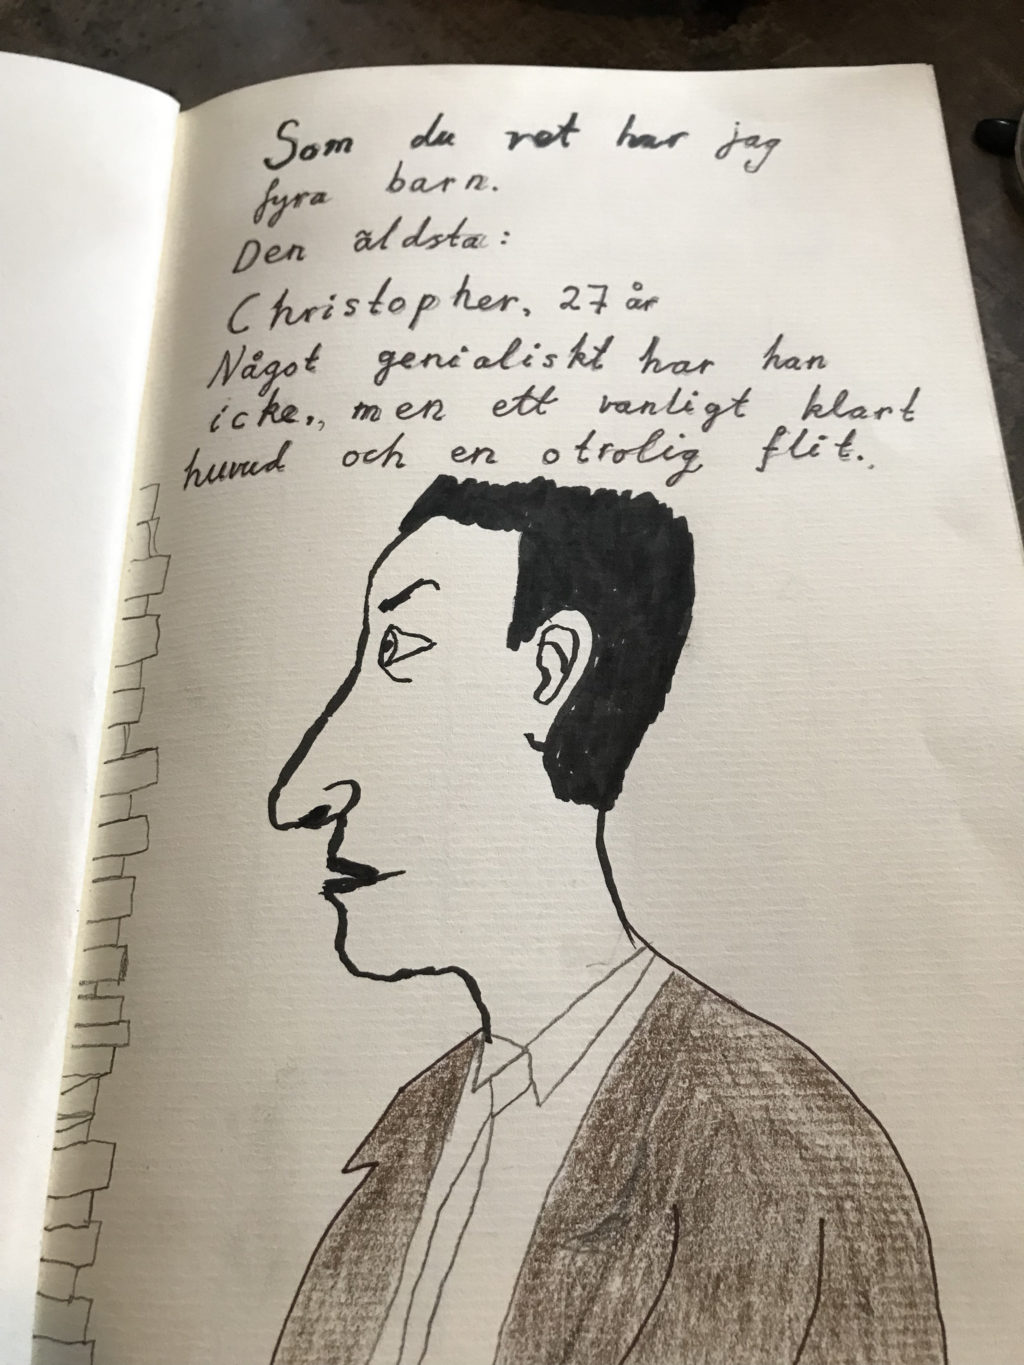 Som du vet har jag
fyra barn.
Den äldsta:
Christopher, 27 år
Något genialiskt har han
icke., men ett vanligt klart
huvud och en otrolig flit.